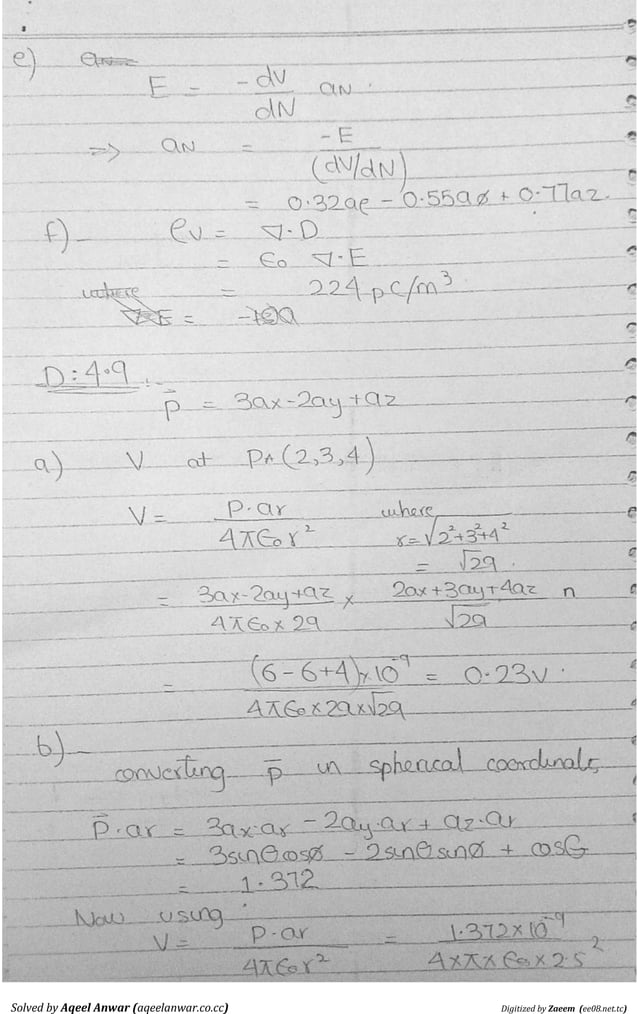 e)
E = -dV/dN aN.
=> aN = -E/(dV/dN)
= 0.32aρ - 0.55aø + 0.77az.
f)- ρv = ∇·D
= ϵo ∇·E
where = 224 pC/m³
D:4.9 :-
p̄ = 3ax-2ay+az
a) V at PA(2,3,4)
V = P·ar/4πϵor² where r=√2²+3²+4²
= √29.
= 3ax-2ay+az/4πϵo×29 × 2ax+3ay+4az/√29 n
= (6-6+4)×10⁻⁹/4πϵo×29×√29 = 0.23v.
b)-
converting p̄ in spherical coordinates
p̄·ar = 3ax·ar - 2ay·ar + az·ar
= 3sinθcosø - 2sinθsinø + cosθ
= 1.372
Now using
V = P·ar/4πϵor² = 1.372×10⁻⁹/4×π×ϵo×2.5²
Solved by Aqeel Anwar (aqeelanwar.co.cc) Digitized by Zaeem (ee08.net.tc)